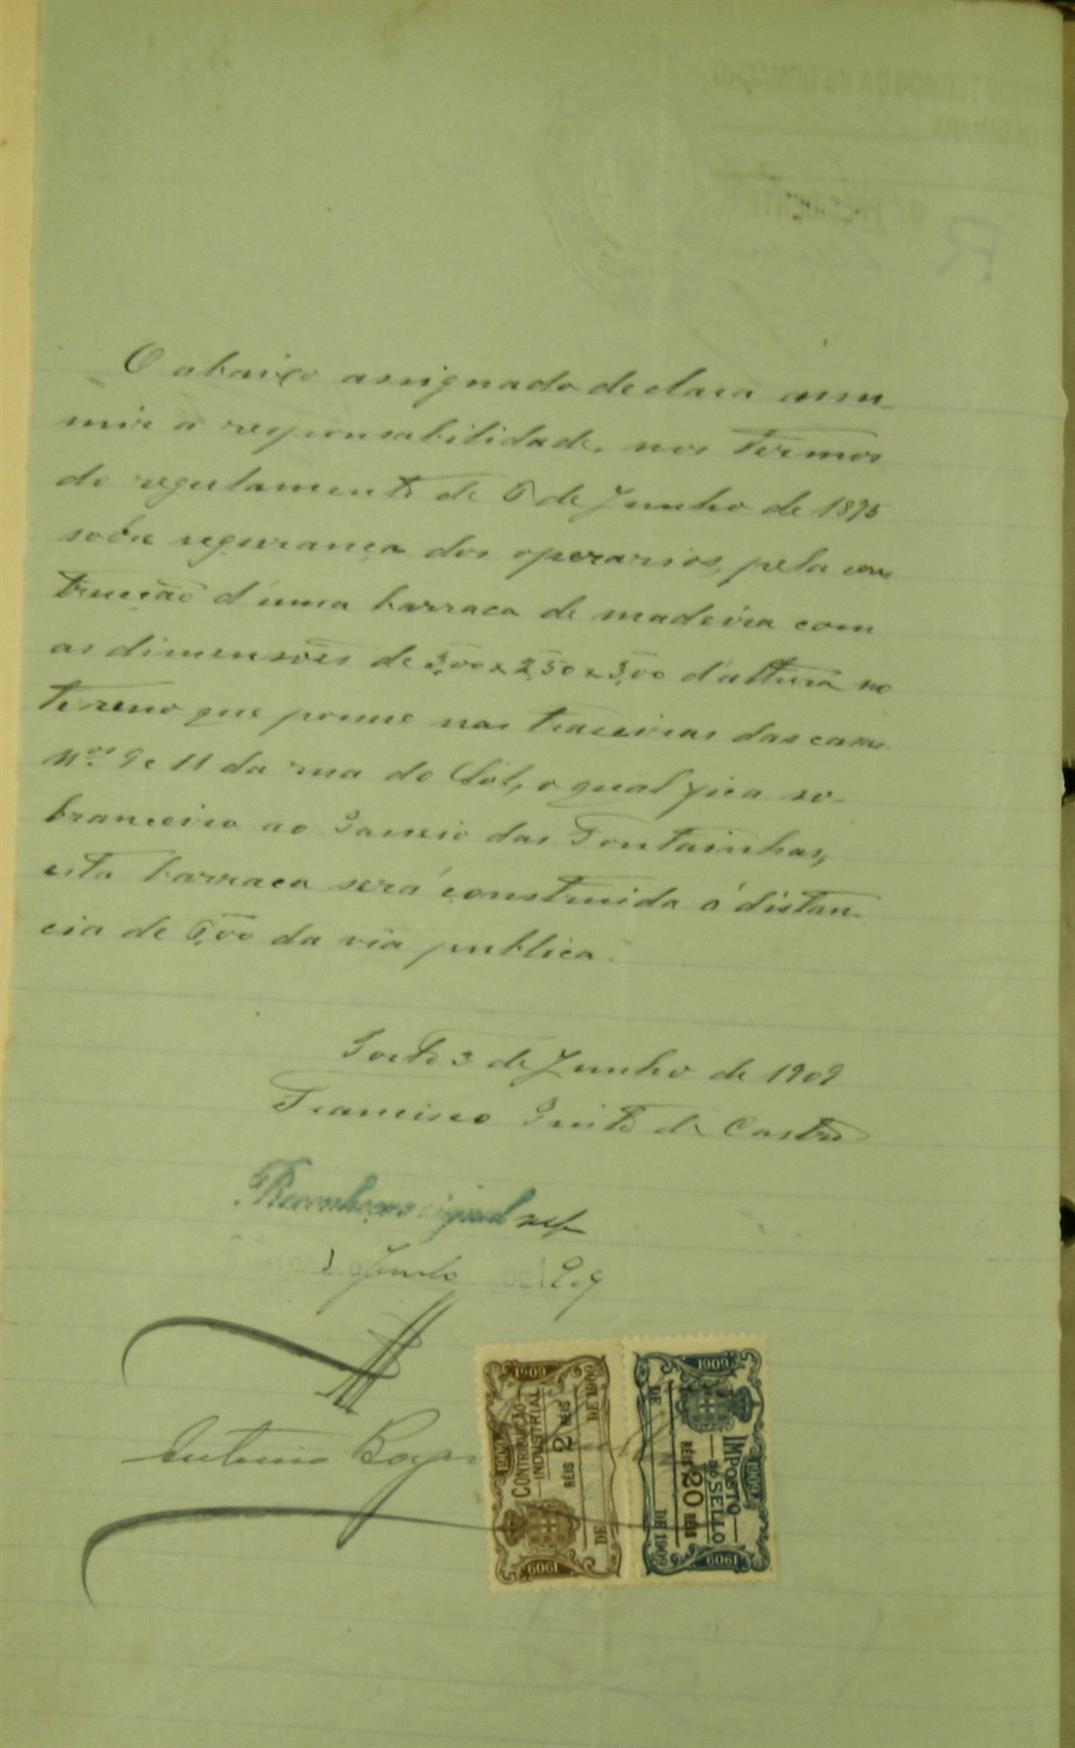 O abaixo assignado declara assu-
mir a responsabilidade, nos termos
do regulamento de 6 de Junho de 1895
sobre segurança dos operarios, pela cons
trucção d'uma barraca de madeira com
as dimensões de 3,00 x 2,50 x 3,00 d'altura no
terreno que possue nas trazeiras das casas
nos. 9 e 11 da rua do Sol, o qual fica so-
branceiro ao Passeio das Fontainhas,
esta barraca será construida á distan-
cia de 6,00 da via publica.
Porto 3 de Junho de 1909
Francisco Pinto de Castro
Reconheço o signal
Junho DE 19
Antonio
1909
CONTRIBUIÇÃO
INDUSTRIAL
RÉIS 2 RÉIS
DE DE 1909
1909
1909
1909
IMPOSTO
DO SELLO
RÉIS 20 RÉIS
DE DE 1909
1909
1909